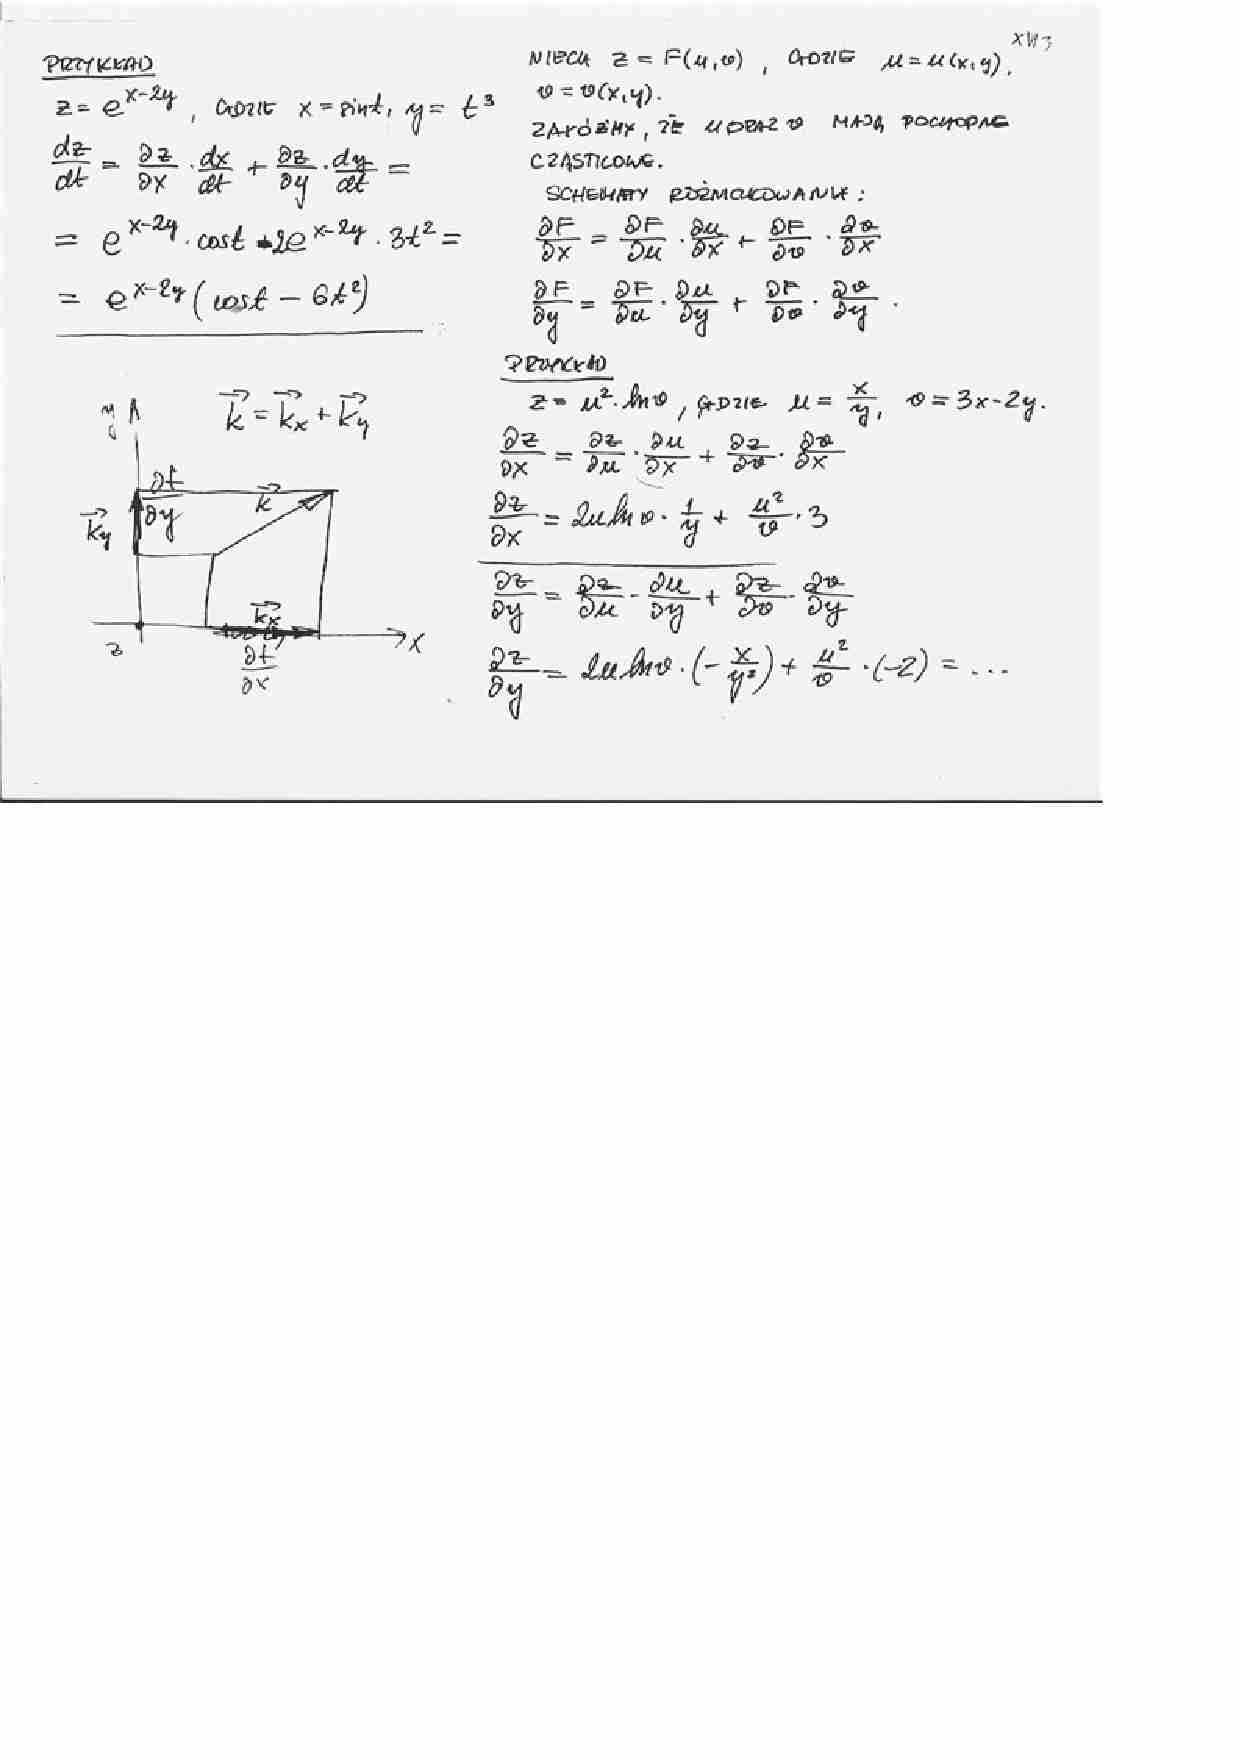 XIII 3
PRZYKŁAD
z = e^{x-2y}, GDZIE x = sint, y = t^3
dz/dt = ∂z/∂x · dx/dt + ∂z/∂y · dy/dt =
= e^{x-2y} · cost - 2e^{x-2y} · 3t^2 =
= e^{x-2y} (cost - 6t^2)
y
k⃗ = k⃗x + k⃗y
∂f/∂y
k⃗
k⃗y
k⃗x
x
z
∂f/∂x
NIECH z = F(u,v), GDZIE u = u(x,y),
v = v(x,y).
ZAŁÓŻMY, ŻE u ORAZ v MAJĄ POCHODNE
CZĄSTKOWE.
SCHEMATY RÓŻNICZKOWANIA:
∂F/∂x = ∂F/∂u · ∂u/∂x + ∂F/∂v · ∂v/∂x
∂F/∂y = ∂F/∂u · ∂u/∂y + ∂F/∂v · ∂v/∂y .
PRZYKŁAD
z = u^2 · ln v, GDZIE u = x/y, v = 3x-2y.
∂z/∂x = ∂z/∂u · ∂u/∂x + ∂z/∂v · ∂v/∂x
∂z/∂x = 2u ln v · 1/y + u^2/v · 3
∂z/∂y = ∂z/∂u · ∂u/∂y + ∂z/∂v · ∂v/∂y
∂z/∂y = 2u ln v · (- x/y^2) + u^2/v · (-2) = ...